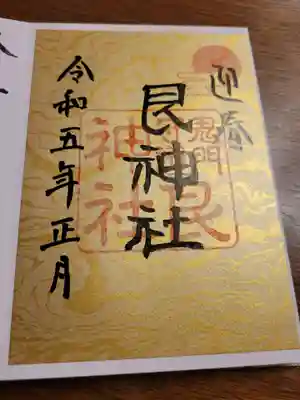 迎春
艮神社
鬼門
艮
神社
令和五年正月